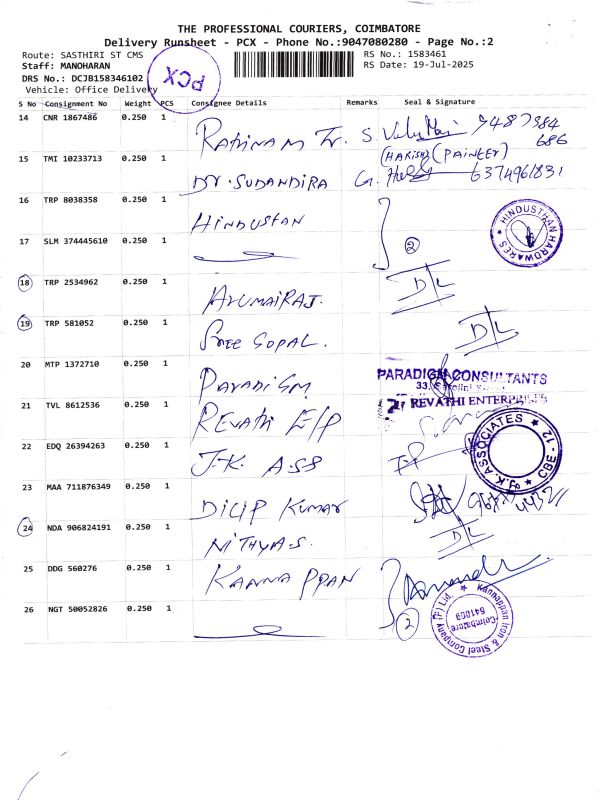 THE PROFESSIONAL COURIERS, COIMBATORE
Delivery Runsheet - PCX - Phone No.:9047080280 - Page No.:2
Route: SASTHIRI ST CMS
RS No.: 1583461
Staff: MANOHARAN
RS Date: 19-Jul-2025
DRS No.: DCJB158346102
Vehicle: Office Delivery
PCX
S No Consignment No Weight PCS Consignee Details Remarks Seal & Signature
14 CNR 1867486 0.250 1 RATHINAM Tr. S. 9487384
686
15 TMI 10233713 0.250 1 DR. SUDANDIRA (HARISH) (PAINTER)
G. 6374961831
16 TRP 8038358 0.250 1 HINDUSTAN HINDUSTHAN HARDWARES
17 SLM 374445610 0.250 1 2
18 TRP 2534962 0.250 1 ARUMAIRAJ. D/L
19 TRP 581052 0.250 1 SREE GOPAL. D/L
20 MTP 1372710 0.250 1 PARADIGM PARADIGM CONSULTANTS
33,
21 TVL 8612536 0.250 1 REVATHI E/P REVATHI ENTERPRISES
22 EDQ 26394263 0.250 1 J.K. ASS J.K. ASSOCIATES CBE - 12
23 MAA 711876349 0.250 1 DILIP KUMAR
24 NDA 906824191 0.250 1 NITHYA.S. D/L
25 DDG 560276 0.250 1 KANNAPPAN
26 NGT 50052826 0.250 1 2 Kannappan Iron & Steel Company (P) Ltd. Coimbatore 641009